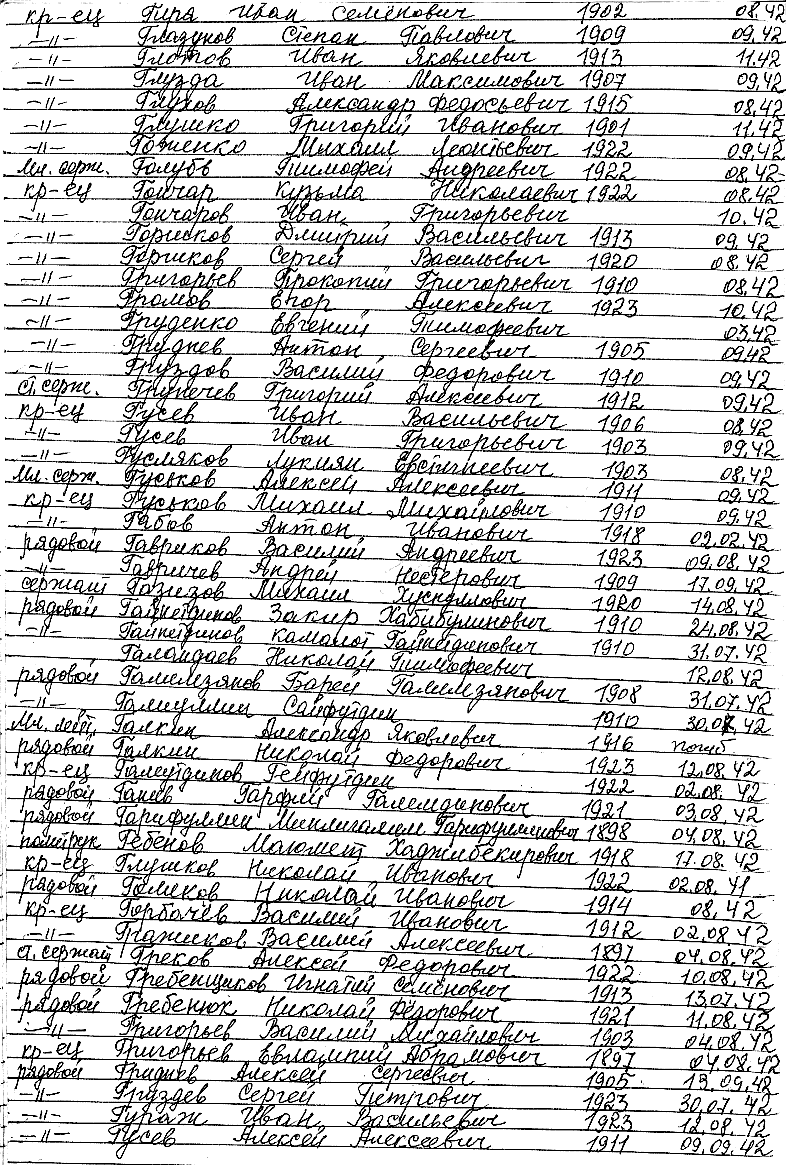 кр-ец Гира Иван Семёнович 1902 08.42
–"– Глазунов Степан Павлович 1909 09.42
–"– Глотов Иван Яковлевич 1913 11.42
–"– Глузда Иван Максимович 1907 09.42
–"– Глухов Александр Федосьевич 1915 08.42
–"– Глушко Григорий Иванович 1901 11.42
–"– Михаил Леонтьевич 1922 09.42
Мл. серж. Голубь Тимофей Андреевич 1922 08.42
кр-ец Гончар Кузьма Николаевич 1922 08.42
–"– Гончаров Иван Григорьевич 10.42
–"– Горшков Дмитрий Васильевич 1913 09.42
–"– Горшков Сергей Васильевич 1920 08.42
–"– Григорьев Прокопий Григорьевич 1910 08.42
–"– Громов Егор Алексеевич 1923 10.42
–"– Груденко Евгений Тимофеевич 03.42
–"– Груднев Антон Сергеевич 1905 09.42
–"– Груздов Василий Федорович 1910 09.42
ст. серж. Григорий Алексеевич 1912 09.42
кр-ец Гусев Иван Васильевич 1906 08.42
–"– Гусев Иван Григорьевич 1903 09.42
–"– Гусляков Лукиян Евстигнеевич 1903 08.42
Мл. серж. Гуськов Алексей Алексеевич 1911 09.42
кр-ец Гуськов Михаил Михайлович 1910 09.42
–"– Габов Антон Иванович 1918 02.02.42
рядовой Гавриков Василий Андреевич 1923 09.08.42
–"– Гавричев Андрей Нестерович 1909 17.09.42
сержант Газизов Михаил 1920 14.08.42
рядовой Гайнетдинов Закир Хабибулинович 1910 24.08.42
–"– Гайнетдинов Камалот Гайнетдинович 1910 31.07.42
Галандаев Николай Тимофеевич 12.08.42
рядовой Галимзянов Барей Галимзянович 1908 31.07.42
–"– Галиуллин Сайфутдин 1910 42
Мл. лейт. Галкин Александр Яковлевич 1916 погиб
рядовой Галкин Николай Федорович 1923 12.08.42
кр-ец Гейфутдин 1922 02.08.42
рядовой Ганиев Гарфий 1921 03.08.42
рядовой Гарифуллин Минлигалим Гарифуллинович 1898 04.08.42
политрук Гебенов Магомет Хаджибекирович 1918 17.08.42
кр-ец Глушков Николай Иванович 1922 02.08.41
рядовой Голиков Николай Иванович 1914 08.42
кр-ец Горбачёв Василий Иванович 1912 02.08.42
–"– Василий Алексеевич 1897 04.08.42
ст. сержант Греков Алексей Федорович 1922 10.08.42
рядовой Гребенщиков Игнатий Семёнович 1913 13.07.42
рядовой Гребенюк Николай Фёдорович 1921 11.08.42
–"– Григорьев Василий Михайлович 1903 04.08.42
кр-ец Григорьев Евлампий Абрамович 1897 04.08.42
рядовой Гриднев Алексей Сергеевич 1905 13.09.42
–"– Груздев Сергей Петрович 1923 30.07.42
–"– Гураж Иван Васильевич 1923 12.08.42
–"– Гусев Алексей Алексеевич 1911 09.09.42